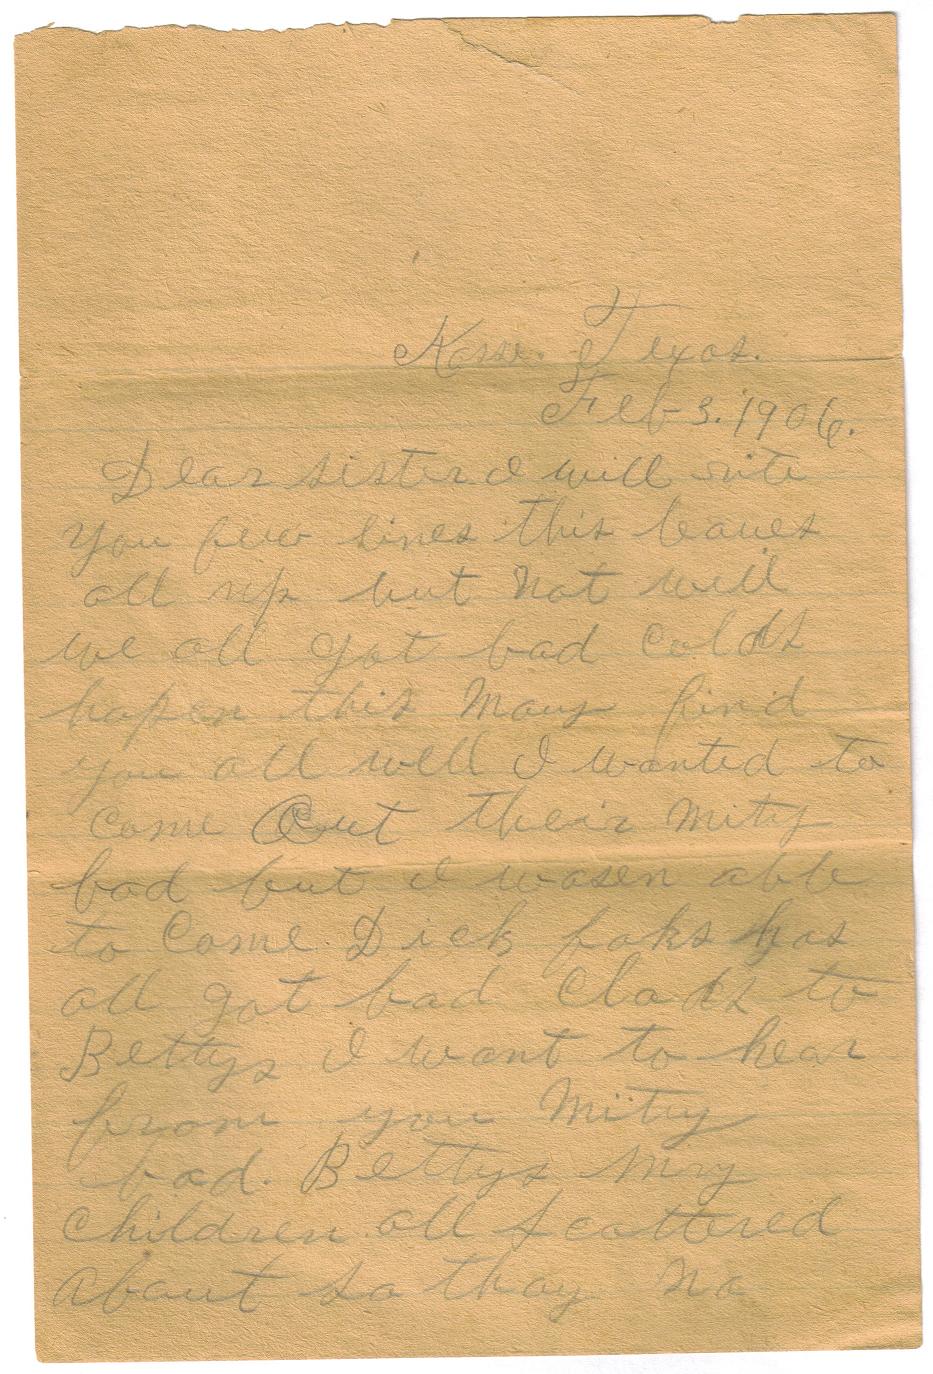 Kosse. Texas.
Feb 3. 1906.
Dear sister I will rite
you few lines this leaves
all up but not well
we all got bad colds
hopen this may find
you all well I wanted to
come out their mity
bad but I wasen able
to come Dick foks has
all got bad clods to
Bettys I want to hear
from you mity
bad. Bettys my
children all scattered
about so thay no